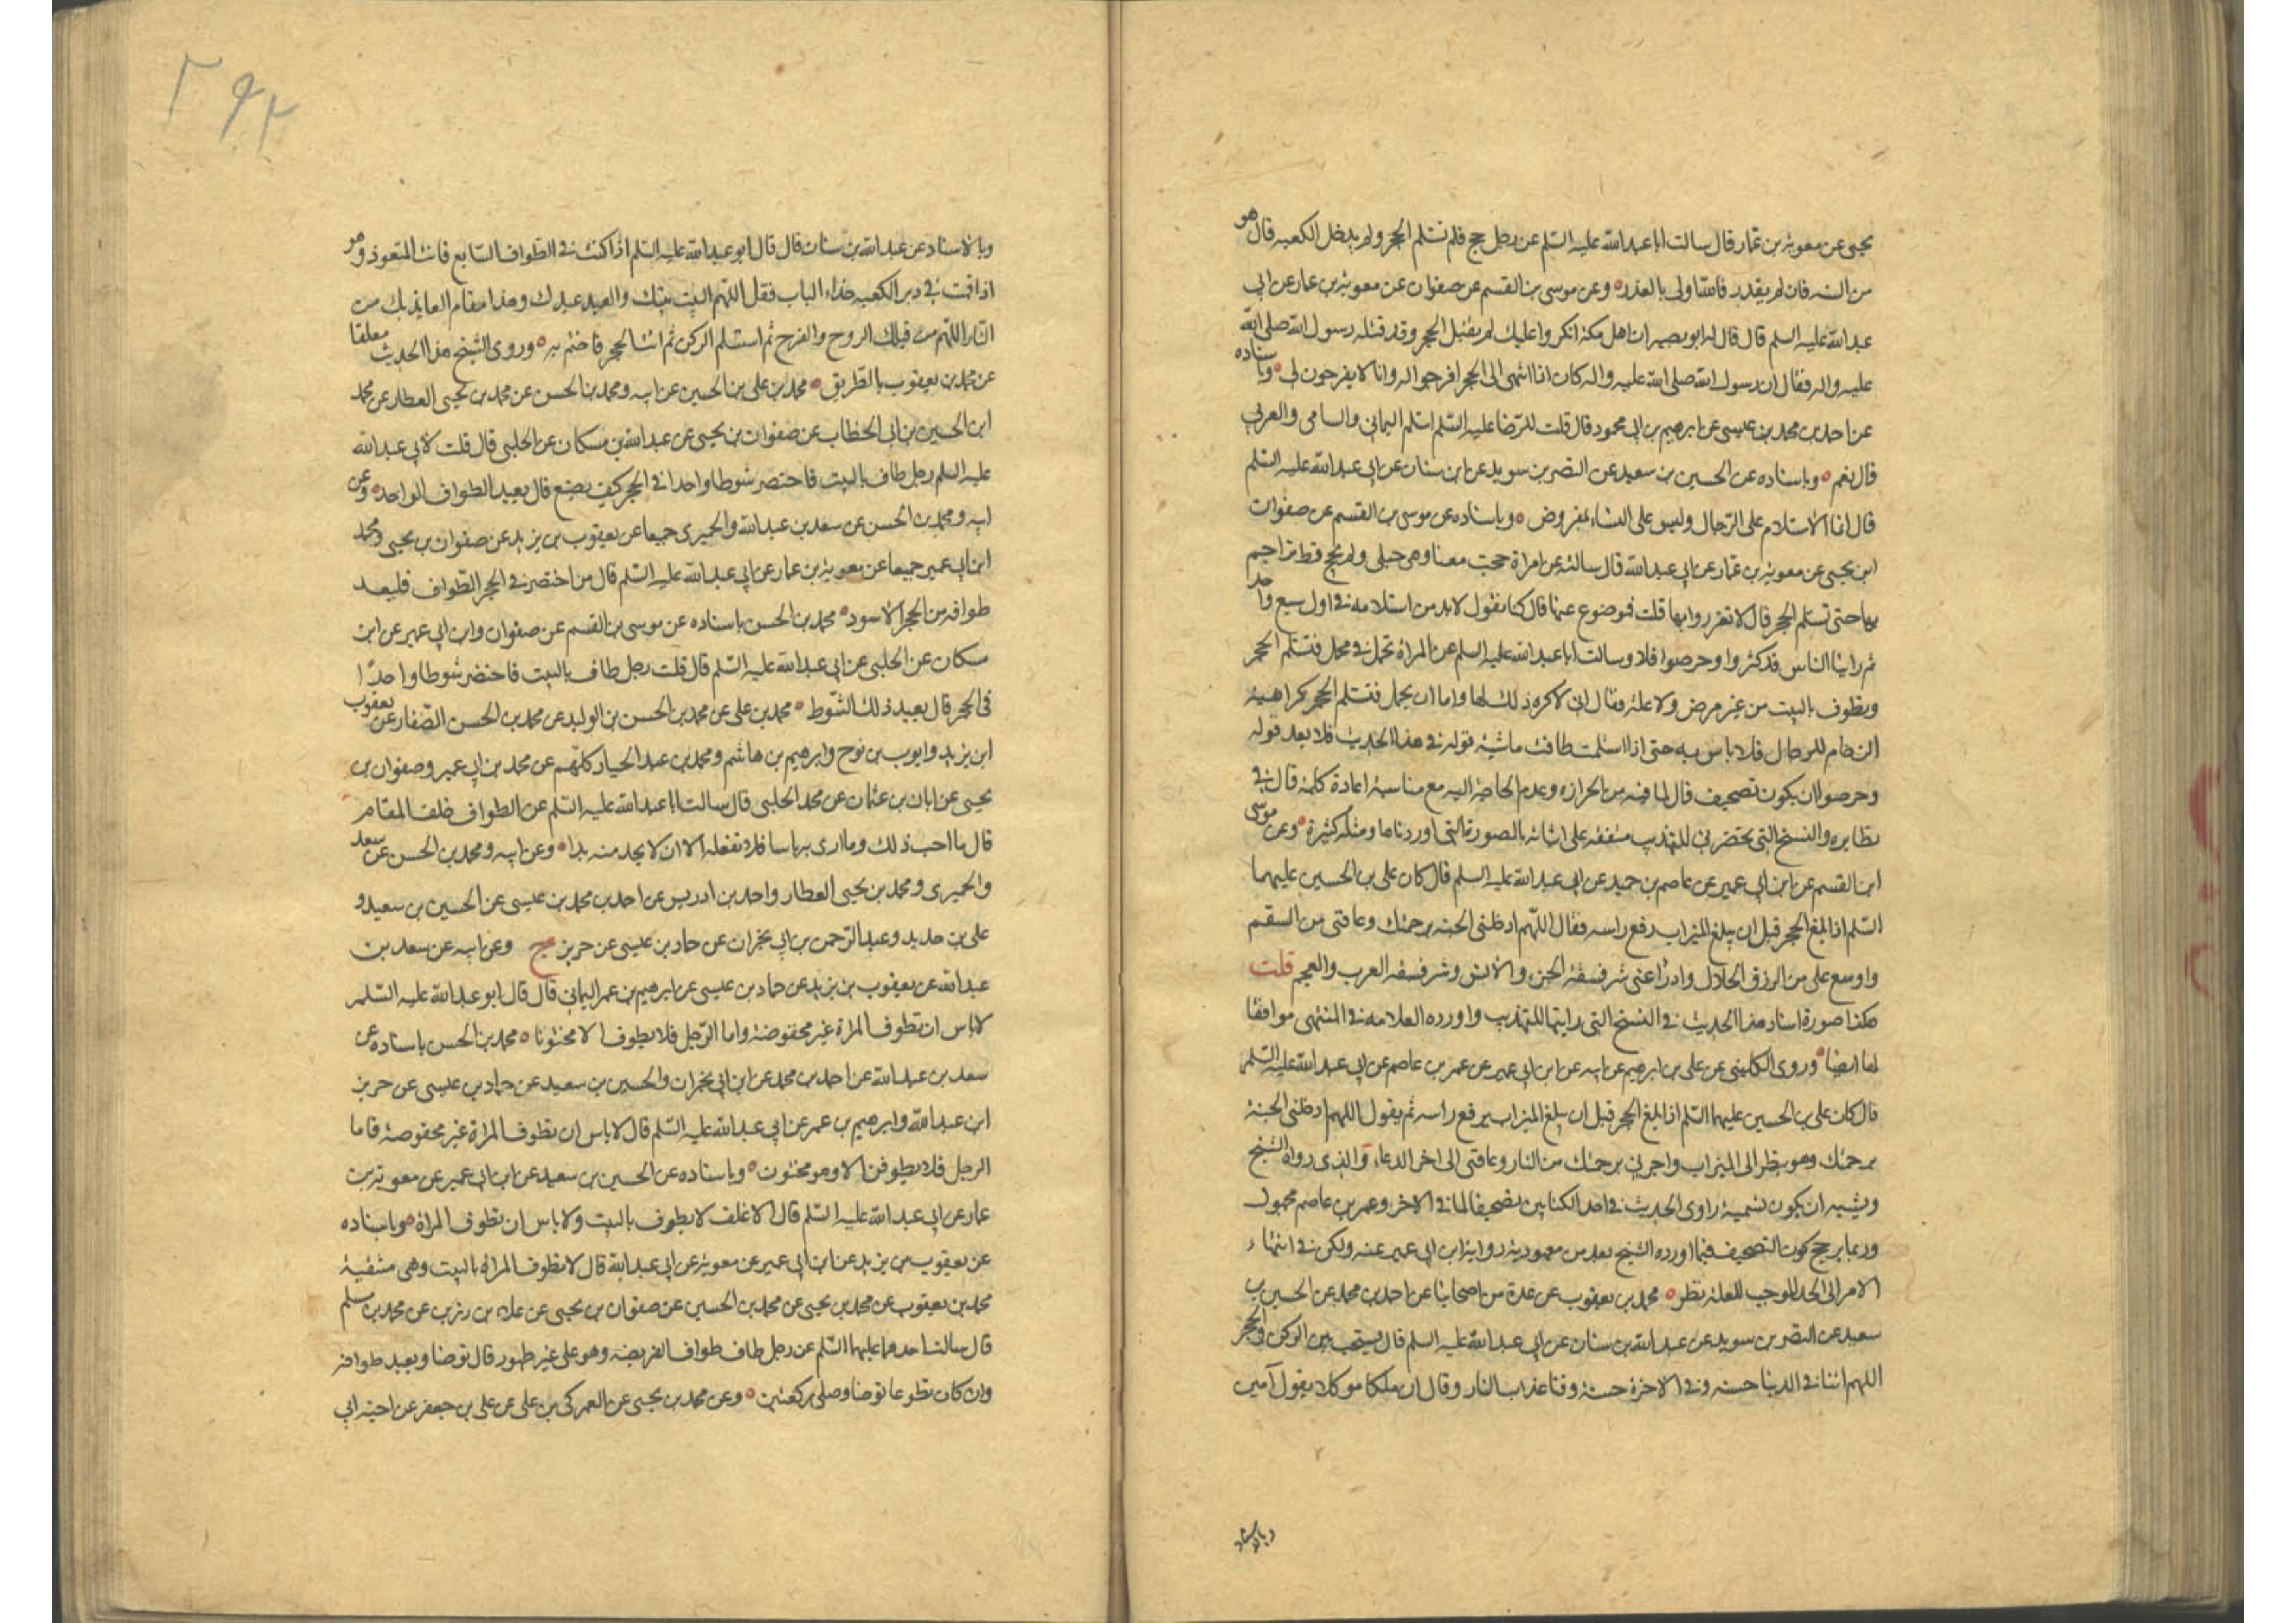 يحيى عن معوية بن عمار قال سالت ابا عبدالله عليه السلم عن رجل حج فلم يستلم الحجر ولم يدخل الكعبه قال هو
من السنه فان لم يقدر فالله اولى بالعذر وعن موسى بن القسم عن صفوان عن معوية بن عمار عن ابي
عبدالله عليه السلم قال قال له ابو بصير ان اهل مكة انكروا عليك لم تقبل الحجر وقد قبله رسول الله صلى الله
عليه واله فقال ان رسول الله صلى الله عليه واله كان اذا انتهى الى الحجر افرجوا له وانا لا يفرجون لي وباسناده
عن احمد بن محمد بن عيسى عن ابرهيم بن ابي محمود قال قلت للرضا عليه السلم استلم اليماني والسامي والغربي
قال نعم وباسناده عن الحسين بن سعيد عن النضر بن سويد عن ابن سنان عن ابي عبدالله عليه السلم
قال انما الاستلام على الرجال وليس على النساء بمفروض وباسناده عن موسى بن القسم عن صفوان
ابن يحيى عن معوية بن عمار عن ابي عبدالله قال سالته عن امراة حجت معنا وهي حبلى ولم تحج قط تزاحم
بها حتى تستلم الحجر قال لا تغرروا بها قلت فموضوع عنها قال كنا نقول لابد من استلامه في اول سبع واحد
ثم راينا الناس قد كثروا وحرصوا فلا وسالت ابا عبدالله عليه السلم عن المراة تحمل في محمل فتستلم الحجر
وتطوف بالبيت من غير مرض ولا علة فقال اني لاكره ذلك لها واما ان تحمل فتستلم الحجر كراهية
الزحام للرجال فلا باس به حتى اذا استلمت طافت ماشية قوله في هذا الحديث فلا بعد قوله
وحرصوا ان يكون تصحيف قال لما فيه من الحزازه وعدم الحاجة اليه مع مناسبة اعادة كلمة قال في
نظايره والنسخ التي تحضرني للتهذيب متفقه على اثباته بالصورة التي اوردناها ومثله كثيرة وعن موسى
ابن القسم عن ابن ابي عمير عن عاصم بن حميد عن ابي عبدالله عليه السلم قال كان علي بن الحسين عليهما
السلم اذا بلغ الحجر قبل ان يبلغ الميزاب رفع راسه فقال اللهم ادخلني الجنه برحمتك وعافني من السقم
واوسع علي من الرزق الحلال وادرا عني شر فسقة الجن والانس وشر فسقه العرب والعجم قلت
هكذا صورة اسناد هذا الحديث في النسخ التي رايتها للتهذيب واورده العلامه في المنتهى موافقا
لها ايضا وروى الكليني عن علي بن ابرهيم عن ابيه عن ابن ابي عمير عن عمر بن عاصم عن ابي عبدالله عليه السلم
قال كان علي بن الحسين عليهما السلم اذا بلغ الحجر قبل ان يبلغ الميزاب يرفع راسه ثم يقول اللهم ادخلني الجنة
برحمتك وهو ينظر الى الميزاب واجرني برحمتك من النار وعافني الى اخر الدعاء والذي رواه الشيخ
ويشبه ان يكون تسمية راوي الحديث في احد الكتابين تصحيفا لما في الاخر وعمر بن عاصم مجهول
وربما يرجح كون التصحيف فيما اورده الشيخ بعد من معهودية رواية ابن ابي عمير عنه ولكن في انتهاء
الامر الى الحد الموجب للعلة نظر محمد بن يعقوب عن عدة من اصحابنا عن احمد بن محمد عن الحسين بن
سعيد عن النضر بن سويد عن عبدالله بن سنان عن ابي عبدالله عليه السلم قال يستحب بين الركن والحجر
اللهم اتنا في الدنيا حسنه وفي الاخرة حسنة وقنا عذاب النار وقال ان ملكا موكلا يقول آمين
وبالاسناد
٢٩٢
وبالاسناد عن عبدالله بن سنان قال قال ابو عبدالله عليه السلم اذا كنت في الطواف السابع فائت المتعوذ وهو
اذا قمت في دبر الكعبه حذاء الباب فقل اللهم البيت بيتك والعبد عبدك وهذا مقام العايذ بك من
النار اللهم من قبلك الروح والفرج ثم استلم الركن ثم ائت الحجر فاختم به وروى الشيخ هذا الحديث معلقا
عن محمد بن يعقوب بالطريق محمد بن علي بن الحسين عن ابيه ومحمد بن الحسن عن محمد بن يحيى العطار عن محمد
ابن الحسين بن ابي الخطاب عن صفوان بن يحيى عن عبدالله بن مسكان عن الحلبي قال قلت لابي عبدالله
عليه السلم رجل طاف بالبيت فاختصر شوطا واحدا في الحجر كيف يصنع قال يعيد الطواف الواحد وعن
ابيه ومحمد بن الحسن عن سعد بن عبدالله والحميري جميعا عن يعقوب بن يزيد عن صفوان بن يحيى ومحمد
ابن ابي عمير جميعا عن معوية بن عمار عن ابي عبدالله عليه السلم قال من اختصر في الحجر الطواف فليعد
طوافه من الحجر الاسود محمد بن الحسن باسناده عن موسى بن القسم عن صفوان وابن ابي عمير عن ابن
مسكان عن الحلبي عن ابي عبدالله عليه السلم قال قلت رجل طاف بالبيت فاختصر شوطا واحدًا
في الحجر قال يعيد ذلك الشوط محمد بن علي عن محمد بن الحسن بن الوليد عن محمد بن الحسن الصفار عن يعقوب
ابن يزيد وايوب بن نوح وابرهيم بن هاشم ومحمد بن عبد الجبار كلهم عن محمد بن ابي عمير وصفوان بن
يحيى عن ابان بن عثمان عن محمد الحلبي قال سالت ابا عبدالله عليه السلم عن الطواف خلف المقام
قال ما احب ذلك وما ارى به باسا فلا تفعله الا ان لا يجد منه بدا وعن ابيه ومحمد بن الحسن عن سعد
والحميري ومحمد بن يحيى العطار واحمد بن ادريس عن احمد بن محمد بن عيسى عن الحسين بن سعيد و
علي بن حديد وعبد الرحمن بن ابي نجران عن حماد بن عيسى عن حريز ح وعن ابيه عن سعد بن
عبدالله عن يعقوب بن يزيد عن حماد بن عيسى عن ابرهيم بن عمر اليماني قال قال ابو عبدالله عليه السلم
لا باس ان تطوف المراة غير مخفوضة واما الرجل فلا يطوف الا مختونا محمد بن الحسن باسناده عن
سعد بن عبدالله عن احمد بن محمد عن ابن ابي نجران والحسين بن سعيد عن حماد بن عيسى عن حريز
ابن عبدالله وابرهيم بن عمر عن ابي عبدالله عليه السلم قال لا باس ان تطوف المراة غير مخفوضة فاما
الرجل فلا يطوفن الا وهو مختون وباسناده عن الحسين بن سعيد عن ابن ابي عمير عن معوية بن
عمار عن ابي عبدالله عليه السلم قال الاغلف لا يطوف بالبيت ولا باس ان تطوف المراة وباسناده
عن يعقوب بن يزيد عن ابن ابي عمير عن معوية عن ابي عبدالله قال لا تطوف المراة بالبيت وهي متنقبة
محمد بن يعقوب عن محمد بن يحيى عن محمد بن الحسين عن صفوان بن يحيى عن علاء بن رزين عن محمد بن مسلم
قال سالت احدهما عليهما السلم عن رجل طاف طواف الفريضه وهو على غير طهور قال توضا ويعيد طوافه
وان كان تطوعا توضا وصلى ركعتين وعن محمد بن يحيى عن العمركي بن علي عن علي بن جعفر عن اخيه ابي